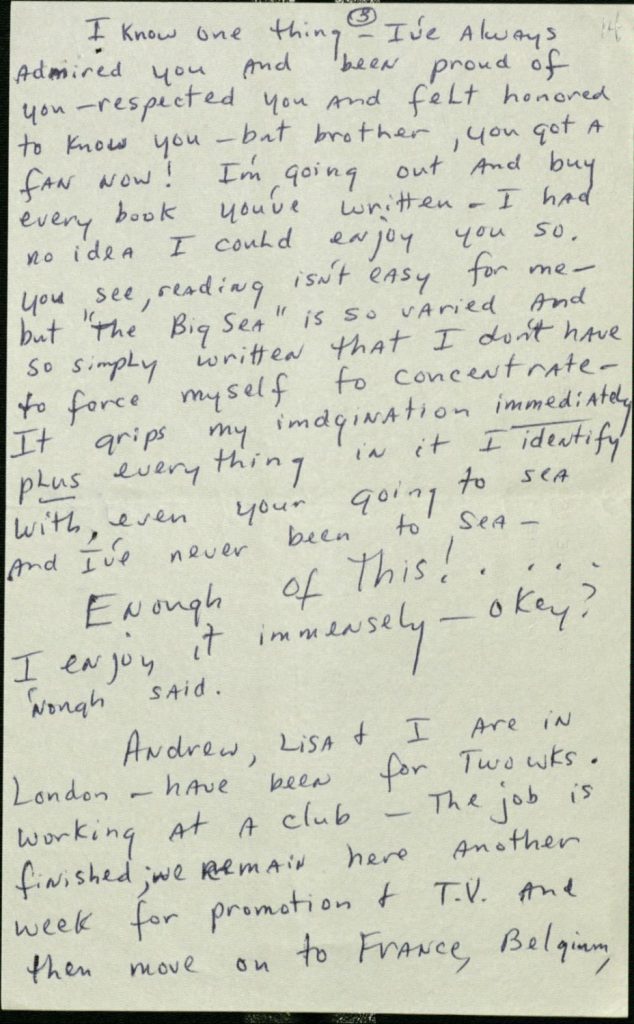 3
14
I know one thing – I've always
admired you and been proud of
you – respected you and felt honored
to know you – but brother, you got a
fan now! I'm going out and buy
every book you've written – I had
no idea I could enjoy you so.
you see, reading isn't easy for me –
but "The Big Sea" is so varied and
so simply written that I don't have
to force myself to concentrate –
It grips my imagination immediately
plus everything in it I identify
with, even your going to sea
and I've never been to sea –
Enough of This! . . . .
I enjoy it immensely – okey?
'Nough said.
Andrew, Lisa & I are in
London – have been for Two wks.
working at a club – The job is
finished; we remain here another
week for promotion & T.V. and
then move on to France, Belgium,